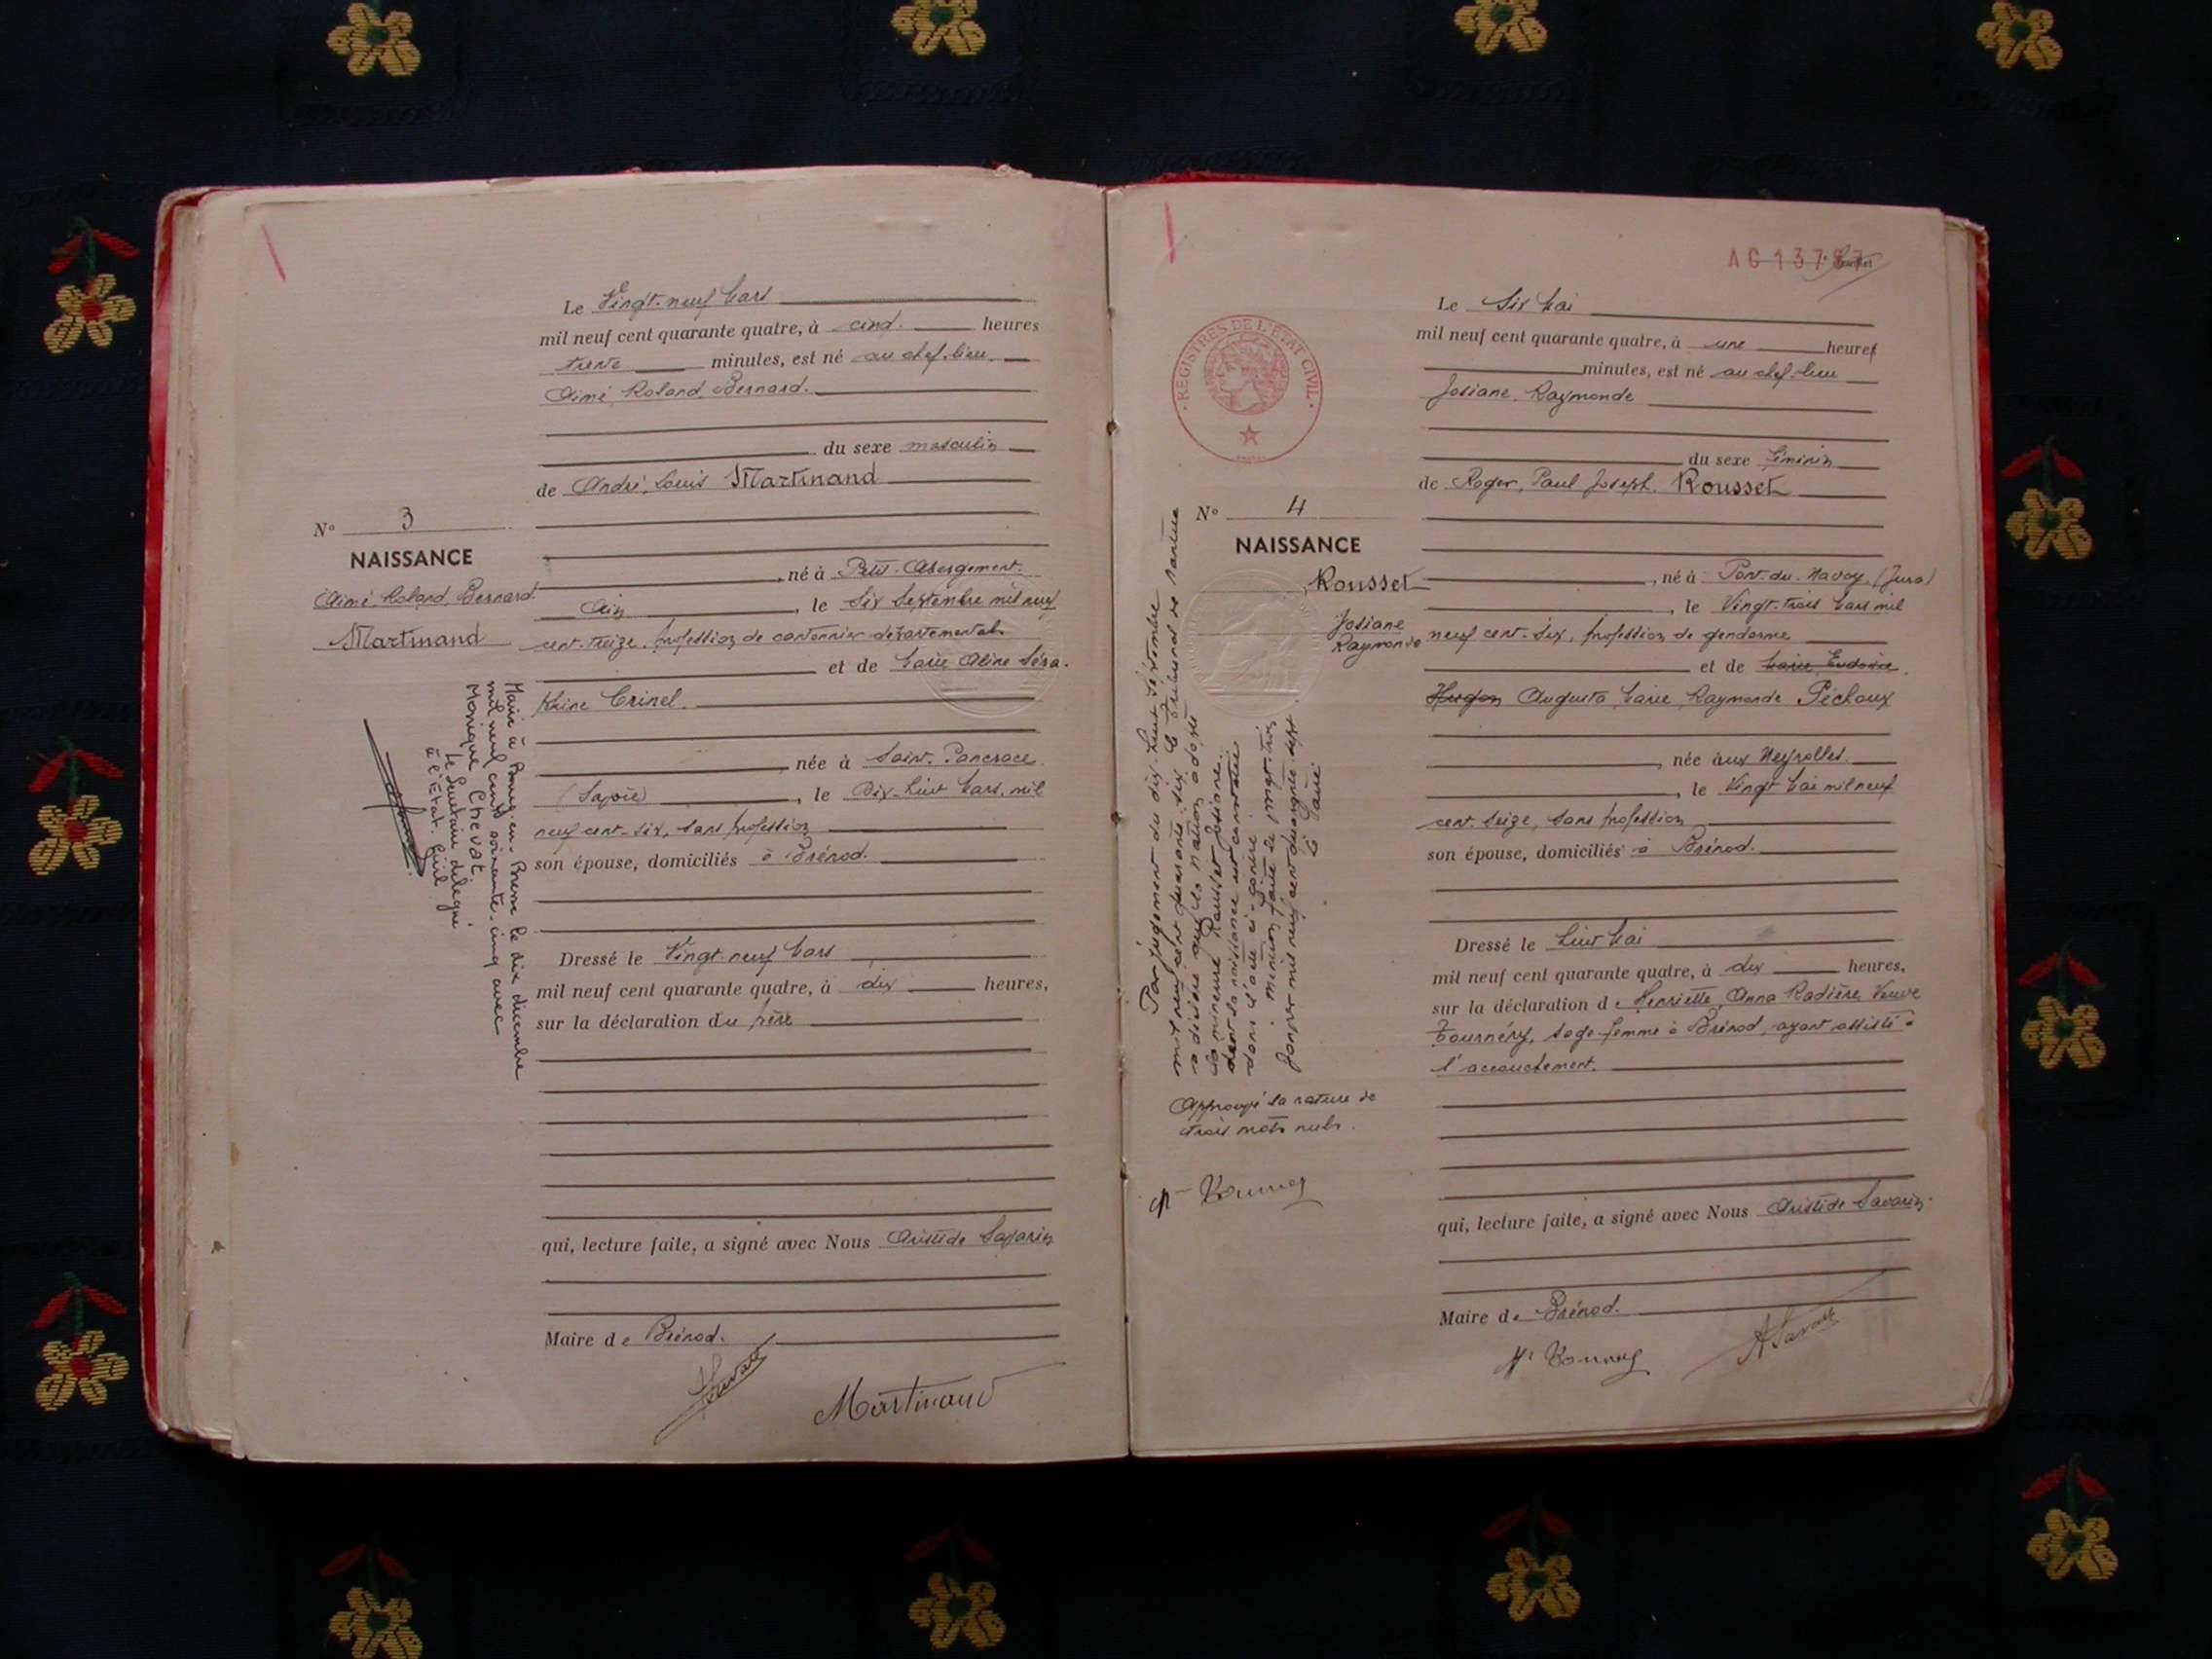 Le Vingt-neuf Mars
mil neuf cent quarante quatre, à cinq heures
trente minutes, est né au chef-lieu
Aimé Roland Bernard.
du sexe masculin
de André, Louis Martinand
N° 3
NAISSANCE
Aimé Roland Bernard
Martinand
, né à Petit-Abergement.
Ain , le Six Septembre mil neuf
cent-treize, profession de cantonnier départemental
et de Marie Aline Séra-
phine Crinel.
née à Saint-Pancrace
(Savoie) , le Dix-huit Mars, mil
neuf cent-six, sans profession
son épouse, domiciliés à Brénod.
Dressé le Vingt-neuf Mars
mil neuf cent quarante quatre, à dix heures,
sur la déclaration du père
qui, lecture faite, a signé avec Nous Aristide Savarin
Maire de Brénod.
Martinand
Marié à Bourg-en-Bresse le dix décembre
mil neuf cent soixante-cinq avec
Monique Chevat.
Le Secrétaire délégué
à l'État-Civil
AG 13787
Le Six Mai
mil neuf cent quarante quatre, à une heures
minutes, est né au chef-lieu
Josiane, Raymonde
du sexe féminin
de Roger, Paul Joseph. Rousset
REGISTRES DE L'ETAT CIVIL
N° 4
NAISSANCE
Rousset
Josiane
Raymonde
, né à Pont-du-Navoy (Jura)
, le Vingt-trois Mars mil
neuf cent-six, profession de gendarme
et de Marie, Eudoxie
Hugon Augusta Marie Raymonde Péchoux
, née aux Neyrolles.
, le Vingt Mai mil neuf
cent-seize, sans profession
son épouse, domiciliés à Brénod.
Dressé le huit Mai
mil neuf cent quarante quatre, à dix heures,
sur la déclaration de Henriette, Anna Radière, Veuve
Tournéry, sage-femme à Brénod, ayant assisté à
l'accouchement.
qui, lecture faite, a signé avec Nous Aristide Savarin
Maire de Brénod.
A Savarin
Par jugement du dix-huit Septembre
mil neuf cent quarante-six le Tribunal de Nantua
a déclaré que la nation adopte
la mineure Rousset Josiane
dont la naissance est constatée
dans l'acte ci-contre
mention faite le vingt-trois
Janvier mil neuf cent quarante-sept.
Le Maire
Approuvé la rature de
trois mots nuls.